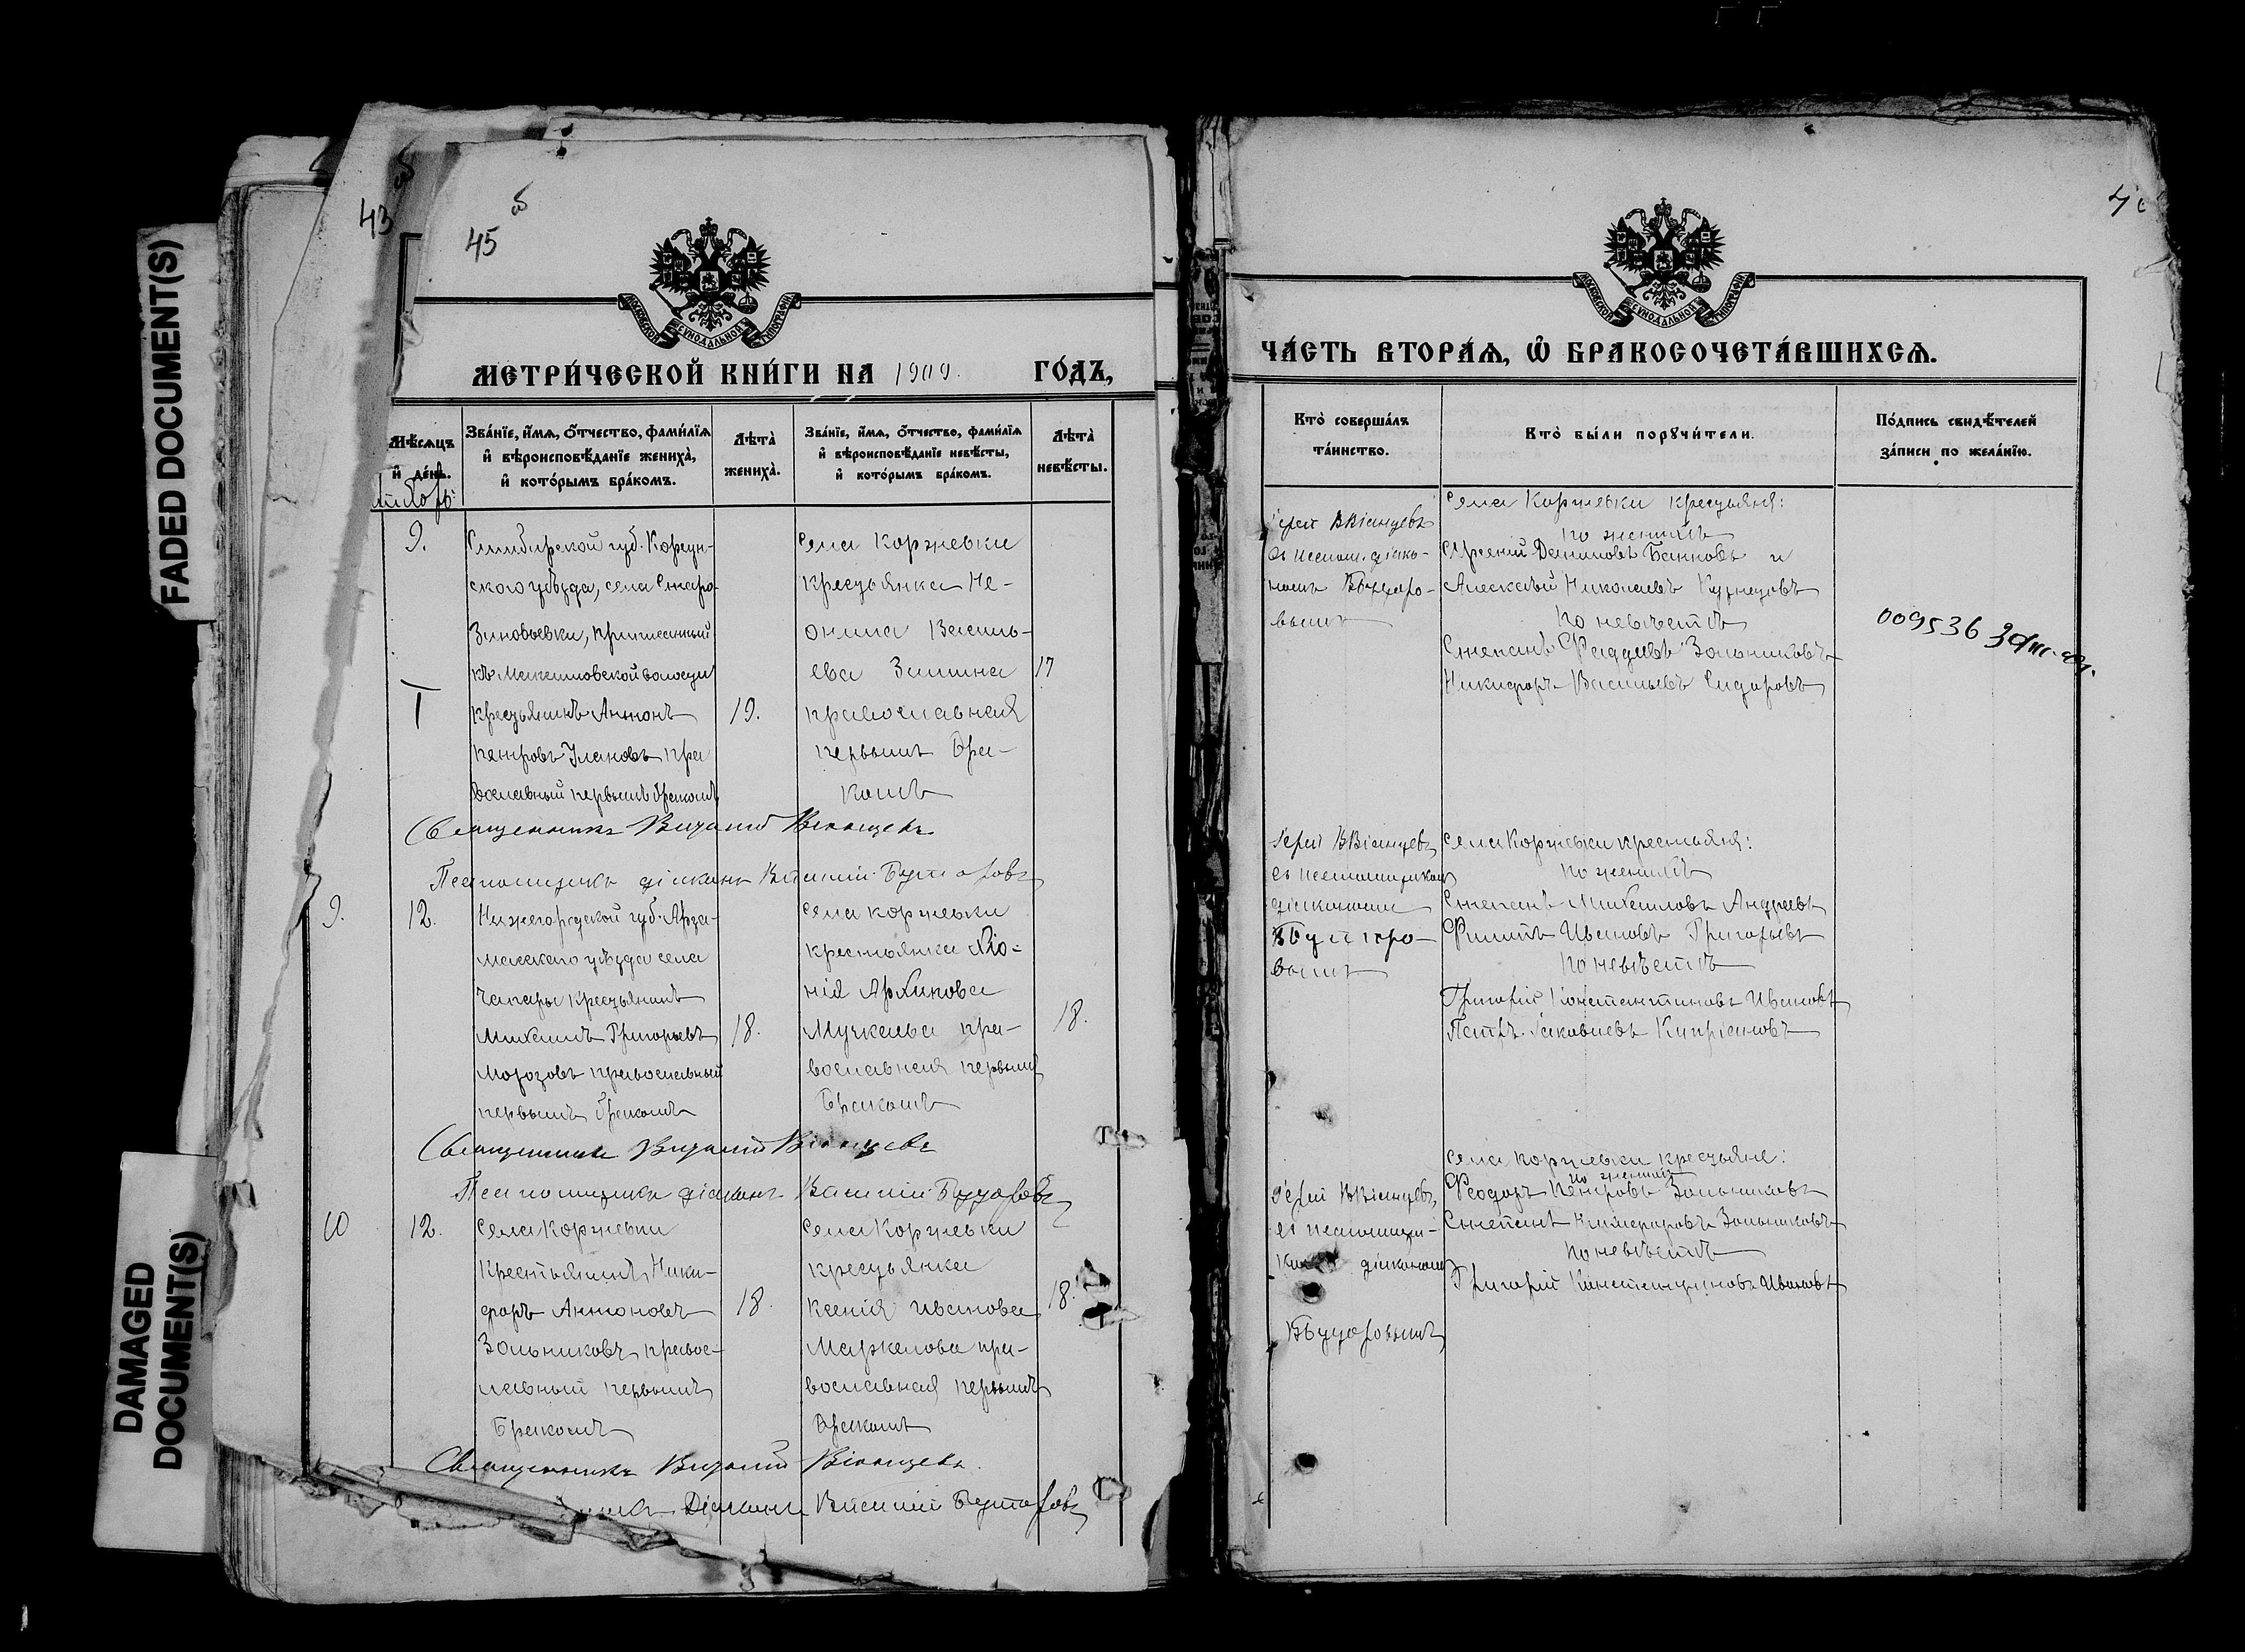 FADED DOCUMENT(S)
DAMAGED
DOCUMENT(S)
43
45
МОСКОВСКОЙ СѴНОДАЛЬНОЙ ТИПОГРАФІИ
МЕТРИ́ЧЕСКОЙ КНИ́ГИ НА 1909. ГО́ДЪ,
Мѣ́сѧцъ
и҆ де́нь.
Зва́нїе, и҆́мѧ, ѻ҆́тчество, фами́лїѧ
и҆ вѣроисповѣ́данїе жениха̀,
и҆ кото́рымъ бра́комъ.
Лѣ́та̀
жениха̀.
Зва́нїе, и҆́мѧ, ѻ҆́тчество, фами́лїѧ
и҆ вѣроисповѣ́данїе невѣ́сты,
и҆ кото́рымъ бра́комъ.
Лѣ́та̀
невѣ́сты.
9.
Симбирской губ. Корсун-
скаго уѣзда, села Старо-
Зиновьевки, приписанный
крестьянинъ Антонъ
Петровъ Улановъ пра
вославный первымъ бракомъ
19.
Села Коржевки
крестьянка Не-
онила Василь-
ева Зимина
православная
первымъ бра-
комъ
17
Священникъ Виталій Віанцевъ
Псаломщикъ діаконъ Василій Бутаровъ
9.
12.
Нижегородской губ. Арза-
масскаго уѣзда села
Чапары крестьянинъ
Михаилъ Григорьевъ
Морозовъ православный
первымъ бракомъ
18.
села Коржевки
крестьянка
нія Архипова
пра-
вославная первымъ
бракомъ
18.
Священникъ Виталій Віанцевъ
Псаломщикъ діаконъ Василій Бутаровъ
10
12.
Села Коржевки
крестьянинъ Ники-
форъ Антоновъ
Зольниковъ правос-
лавный первымъ
бракомъ
18.
Села Коржевки
крестьянка
Ксенія Иванова
Маркелова пра-
вославная первымъ
бракомъ
18.
Священникъ Виталій Віанцевъ.
Діаконъ Василій Бутаровъ
МОСКОВСКОЙ СѴНОДАЛЬНОЙ ТИПОГРАФІИ
ЧА́СТЬ ВТОРА́Ѧ, Ѡ҆ БРАКОСОЧЕТА́ВШИХСѦ.
Кто̀ соверша́лъ
та́инство.
Кто̀ бы́ли порꙋчи́тели.
По́дпись свидѣ́телей
за́писи по жела́нїю.
Іерей В Віанцевъ
съ псалом. діако-
номъ Бутаро-
вымъ
Села Коржевки крестьяня:
по женихѣ
Данилов Баннов и
Алексѣй Николаевъ Кузнецовъ
по невѣстѣ
Степанъ Фаддѣевъ Зольниковъ
Никифоръ Васильевъ Сидоровъ
009536
Іерей В Віанцевъ
съ псаломщикомъ
діакономъ
Бутаро-
вымъ
Села Коржевки крестьяня:
по женихѣ
Степанъ Михаиловъ Андреевъ
Филипъ Ивановъ Григорьевъ
по невѣстѣ
Григорій Константиновъ Ивановъ
Петръ Іаковлевъ Кипріановъ
Іерей В Віанцевъ,
съ псаломщи-
діакономъ
Бутаровымъ
Села Коржевки крестьяне:
по женихѣ
Феодоръ Петровъ Зольниковъ
Степанъ Никифоровъ Зольниковъ
по невѣстѣ
Григорій Константиновъ Ивановъ